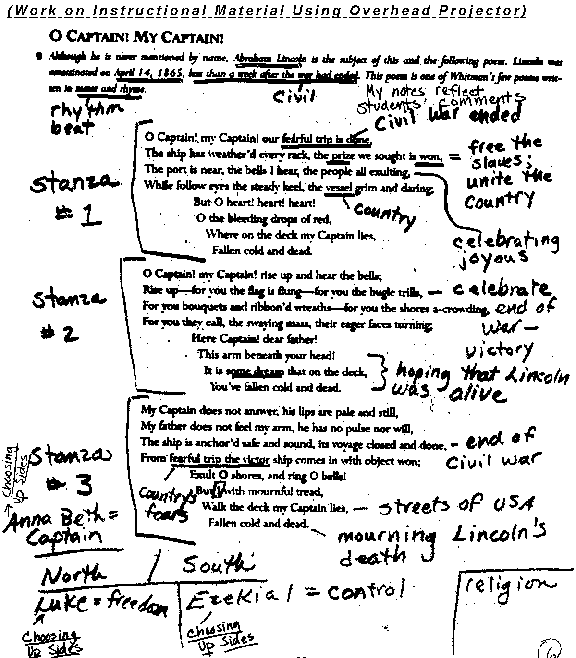 (Work on Instructional Material Using Overhead Projector)
O CAPTAIN! MY CAPTAIN!
Although he is never mentioned by name, Abraham Lincoln is the subject of this and the following poem. Lincoln was
assassinated on April 14, 1865, less than a week after the war had ended. This poem is one of Whitman's few poems writ-
ten in meter and rhyme.
Civil
My notes reflect
students' comments
rhythm
beat
Civil War ended
Stanza
# 1
O Captain! my Captain! our fearful trip is done,
The ship has weather'd every rack, the prize we sought is won,
= free the
slaves;
unite the
country
The port is near, the bells I hear, the people all exulting,
celebrating
joyous
While follow eyes the steady keel, the vessel grim and daring;
country
But O heart! heart! heart!
O the bleeding drops of red,
Where on the deck my Captain lies,
Fallen cold and dead.
Stanza
# 2
O Captain! my Captain! rise up and hear the bells;
Rise up—for you the flag is flung—for you the bugle trills,
– celebrate
end of
war –
victory
For you bouquets and ribbon'd wreaths—for you the shores a-crowding,
For you they call, the swaying mass, their eager faces turning;
Here Captain! dear father!
This arm beneath your head!
It is some dream that on the deck,
You've fallen cold and dead.
hoping that Lincoln
was alive
Stanza
# 3
My Captain does not answer, his lips are pale and still,
My father does not feel my arm, he has no pulse nor will,
The ship is anchor'd safe and sound, its voyage closed and done,
– end of
Civil war
From fearful trip the victor ship comes in with object won;
Country's
fears
Exult O shores, and ring O bells!
But I with mournful tread,
Walk the deck my Captain lies,
– streets of USA
Fallen cold and dead.
mourning Lincoln's
death
Choosing
Up Sides
Anna Beth =
Captain
North / South
Luke = freedom
Choosing
Up Sides
Ezekial = control
choosing
Up Sides
religion